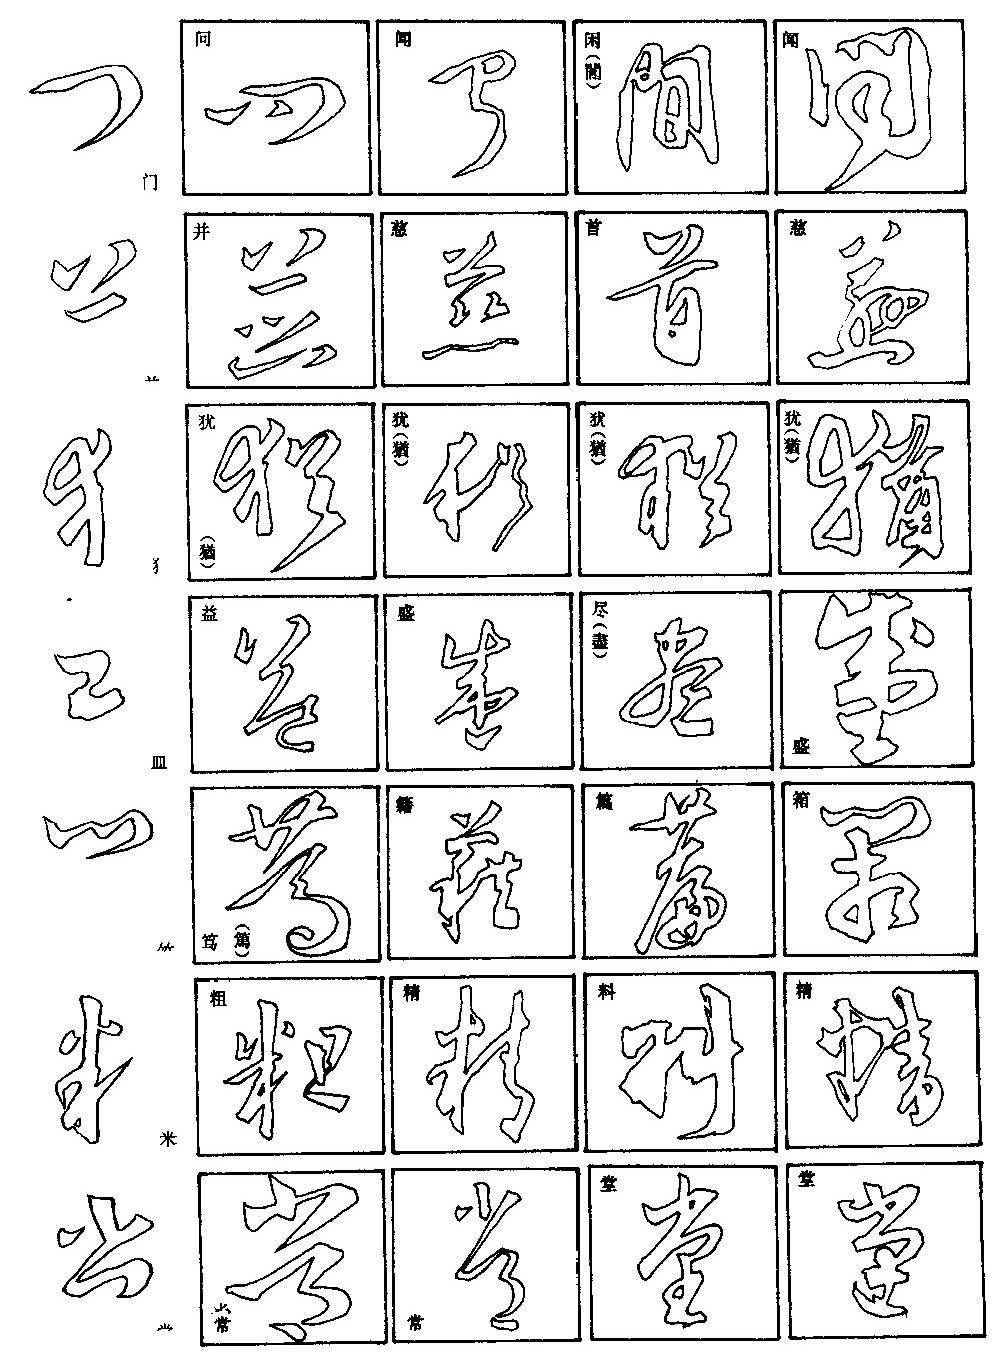 门 问 闻 闲(閒) 闻
䒑 并 慈 首 慈
犭 犹(猶) 犹(猶) 犹(猶) 犹(猶)
皿 益 盛 尽(盡) 盛
⺮ 笃(篤) 籍 篇 箱
米 粗 精 料 精
⺌ 常 常 堂 堂